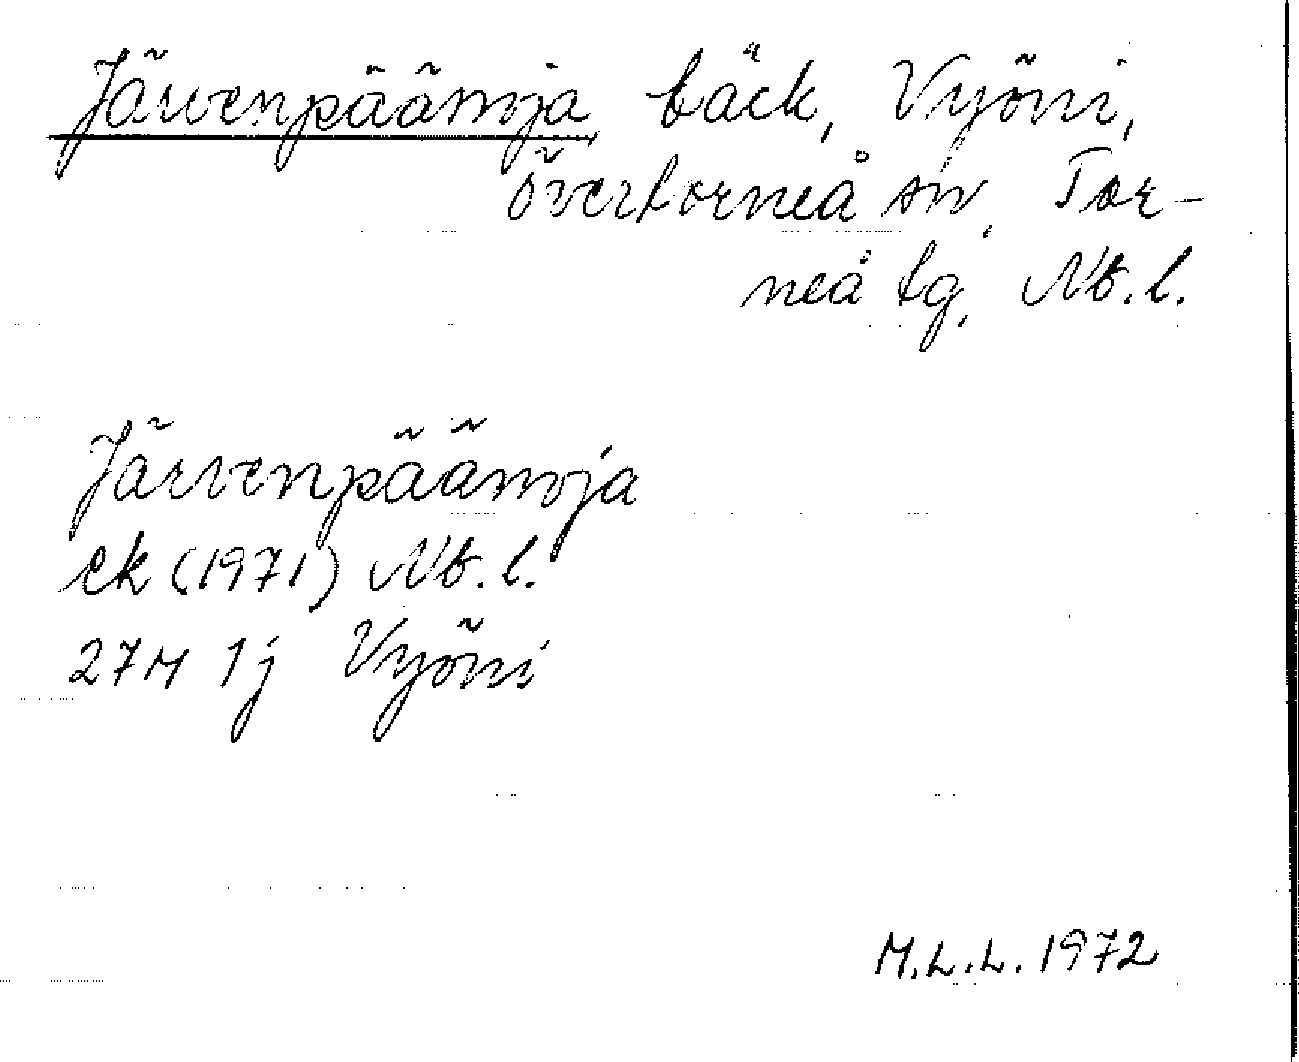 Järvenpäänoja, bäck, Vyöni,
Övertorneå sn, Tor-
neå tg, Nb.l.
Järvenpäänoja
ek (1971) Nb.l.
27M 1j Vyöni
M.L.L. 1972